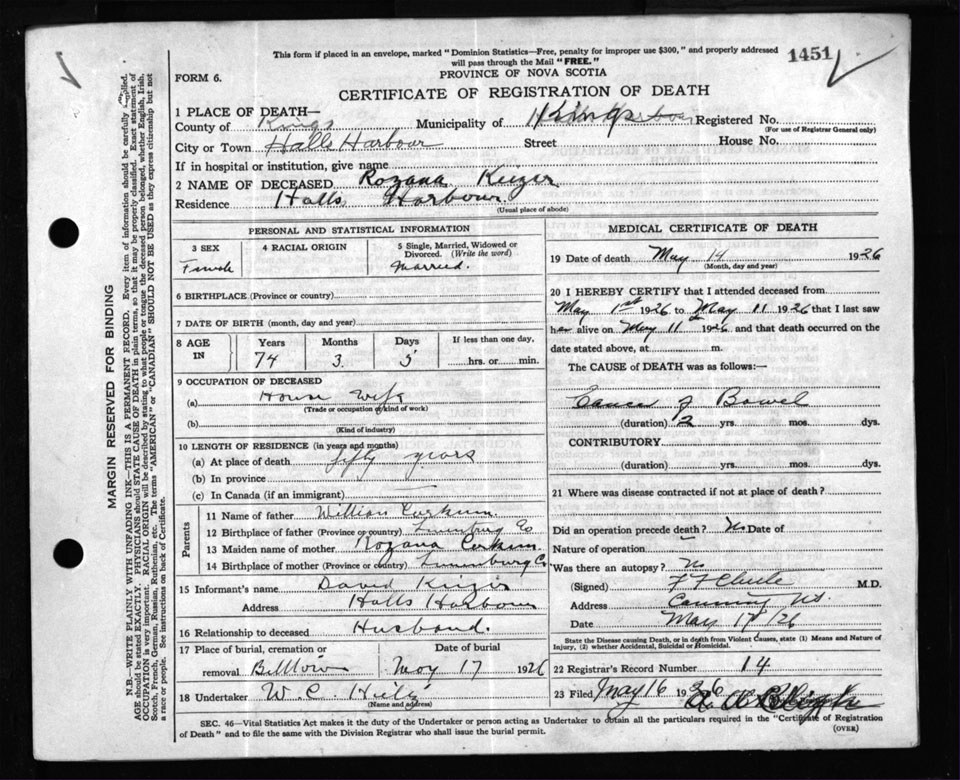 This form if placed in an envelope, marked "Dominion Statistics—Free, penalty for improper use $300," and properly addressed
will pass through the Mail "FREE."
1451
FORM 6.
PROVINCE OF NOVA SCOTIA
CERTIFICATE OF REGISTRATION OF DEATH
1 PLACE OF DEATH—
County of Kings Municipality of Kings Registered No.
(For use of Registrar General only)
City or Town Halls Harbour Street House No.
If in hospital or institution, give name
2 NAME OF DECEASED Rozana Keizer
Residence Halls Harbour
(Usual place of abode)
PERSONAL AND STATISTICAL INFORMATION
3 SEX 4 RACIAL ORIGIN 5 Single, Married, Widowed or
Divorced. (Write the word)
Female Married.
6 BIRTHPLACE (Province or country)
7 DATE OF BIRTH (month, day and year)
8 AGE IN Years Months Days If less than one day,
74 3 5 hrs. or min.
9 OCCUPATION OF DECEASED
(a) House Wife
(Trade or occupation or kind of work)
(b)
(Kind of industry)
10 LENGTH OF RESIDENCE (in years and months)
(a) At place of death fifty years
(b) In province
(c) In Canada (if an immigrant)
Parents
11 Name of father William Corkum
12 Birthplace of father (Province or country) Lunenburg Co
13 Maiden name of mother Rozana Corkum
14 Birthplace of mother (Province or country) Lunenburg Co
15 Informant's name David Keizer
Address Halls Harbour
16 Relationship to deceased Husband.
17 Place of burial, cremation or Date of burial
removal May 17 1926
18 Undertaker W. C.
(Name and address)
MEDICAL CERTIFICATE OF DEATH
19 Date of death May 14 1926
(Month, day and year)
20 I HEREBY CERTIFY that I attended deceased from
May 1st 1926 to May 11 1926 that I last saw
her alive on May 11th 1926 and that death occurred on the
date stated above, at m.
The CAUSE of DEATH was as follows:—
Cancer of Bowel
(duration) 2 yrs. mos. dys.
CONTRIBUTORY
(duration) yrs. mos. dys.
21 Where was disease contracted if not at place of death?
Did an operation precede death? No Date of
Nature of operation
Was there an autopsy? No
(Signed) M.D.
Address Canning N.S.
Date May 17/26
State the Disease causing Death, or in death from Violent Causes, state (1) Means and Nature of
Injury, (2) whether Accidental, Suicidal or Homicidal.
22 Registrar's Record Number 14
23 Filed May 16 1926
SEC. 46—Vital Statistics Act makes it the duty of the Undertaker or person acting as Undertaker to obtain all the particulars required in the "Certificate of Registration
of Death" and to file the same with the Division Registrar who shall issue the burial permit.
(OVER)
MARGIN RESERVED FOR BINDING
N.B.—WRITE PLAINLY WITH UNFADING INK—THIS IS A PERMANENT RECORD. Every item of information should be carefully supplied.
AGE should be stated EXACTLY. PHYSICIANS should STATE CAUSE OF DEATH in plain terms, so that it may be properly classified. Exact statement of
OCCUPATION is very important. RACIAL ORIGIN will be described by stating to what people or tongue the deceased person belonged, whether English, Irish,
Scotch, French, German, Russian, Ruthenian, etc. The terms "AMERICAN" or "CANADIAN" SHOULD NOT BE USED as they express citizenship but not
a race or people. See instructions on back of Certificate.